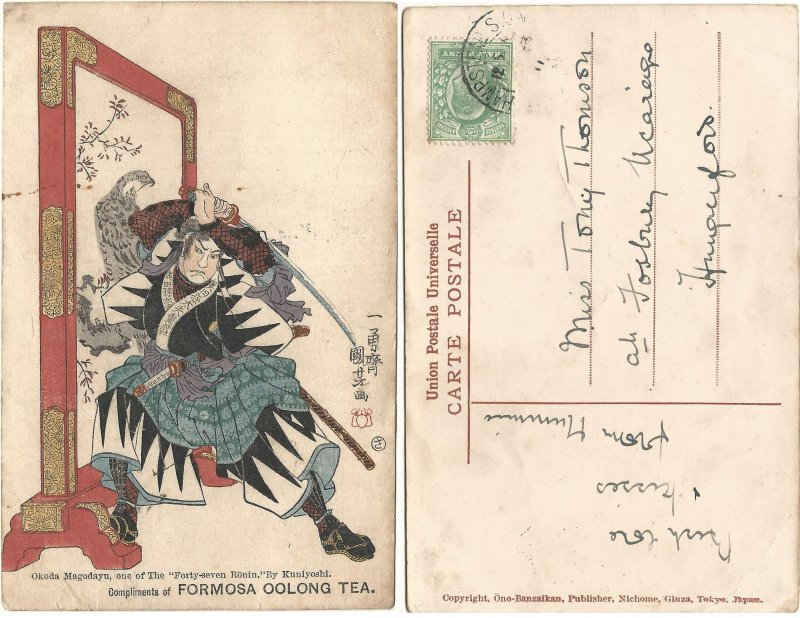 一勇齋
國芳画
Okuda Magodayu, one of The "Forty-seven Rōnin." By Kuniyoshi.
Compliments of FORMOSA OOLONG TEA.
HAMPS
Union Postale Universelle
CARTE POSTALE
Miss Tony Thomson
Fosbury Vicarage
Hungerford.
Best love
kisses
from Mummie
Copyright, Ōno-Banzaikan, Publisher, Nichome, Ginza, Tokyo, Japan.